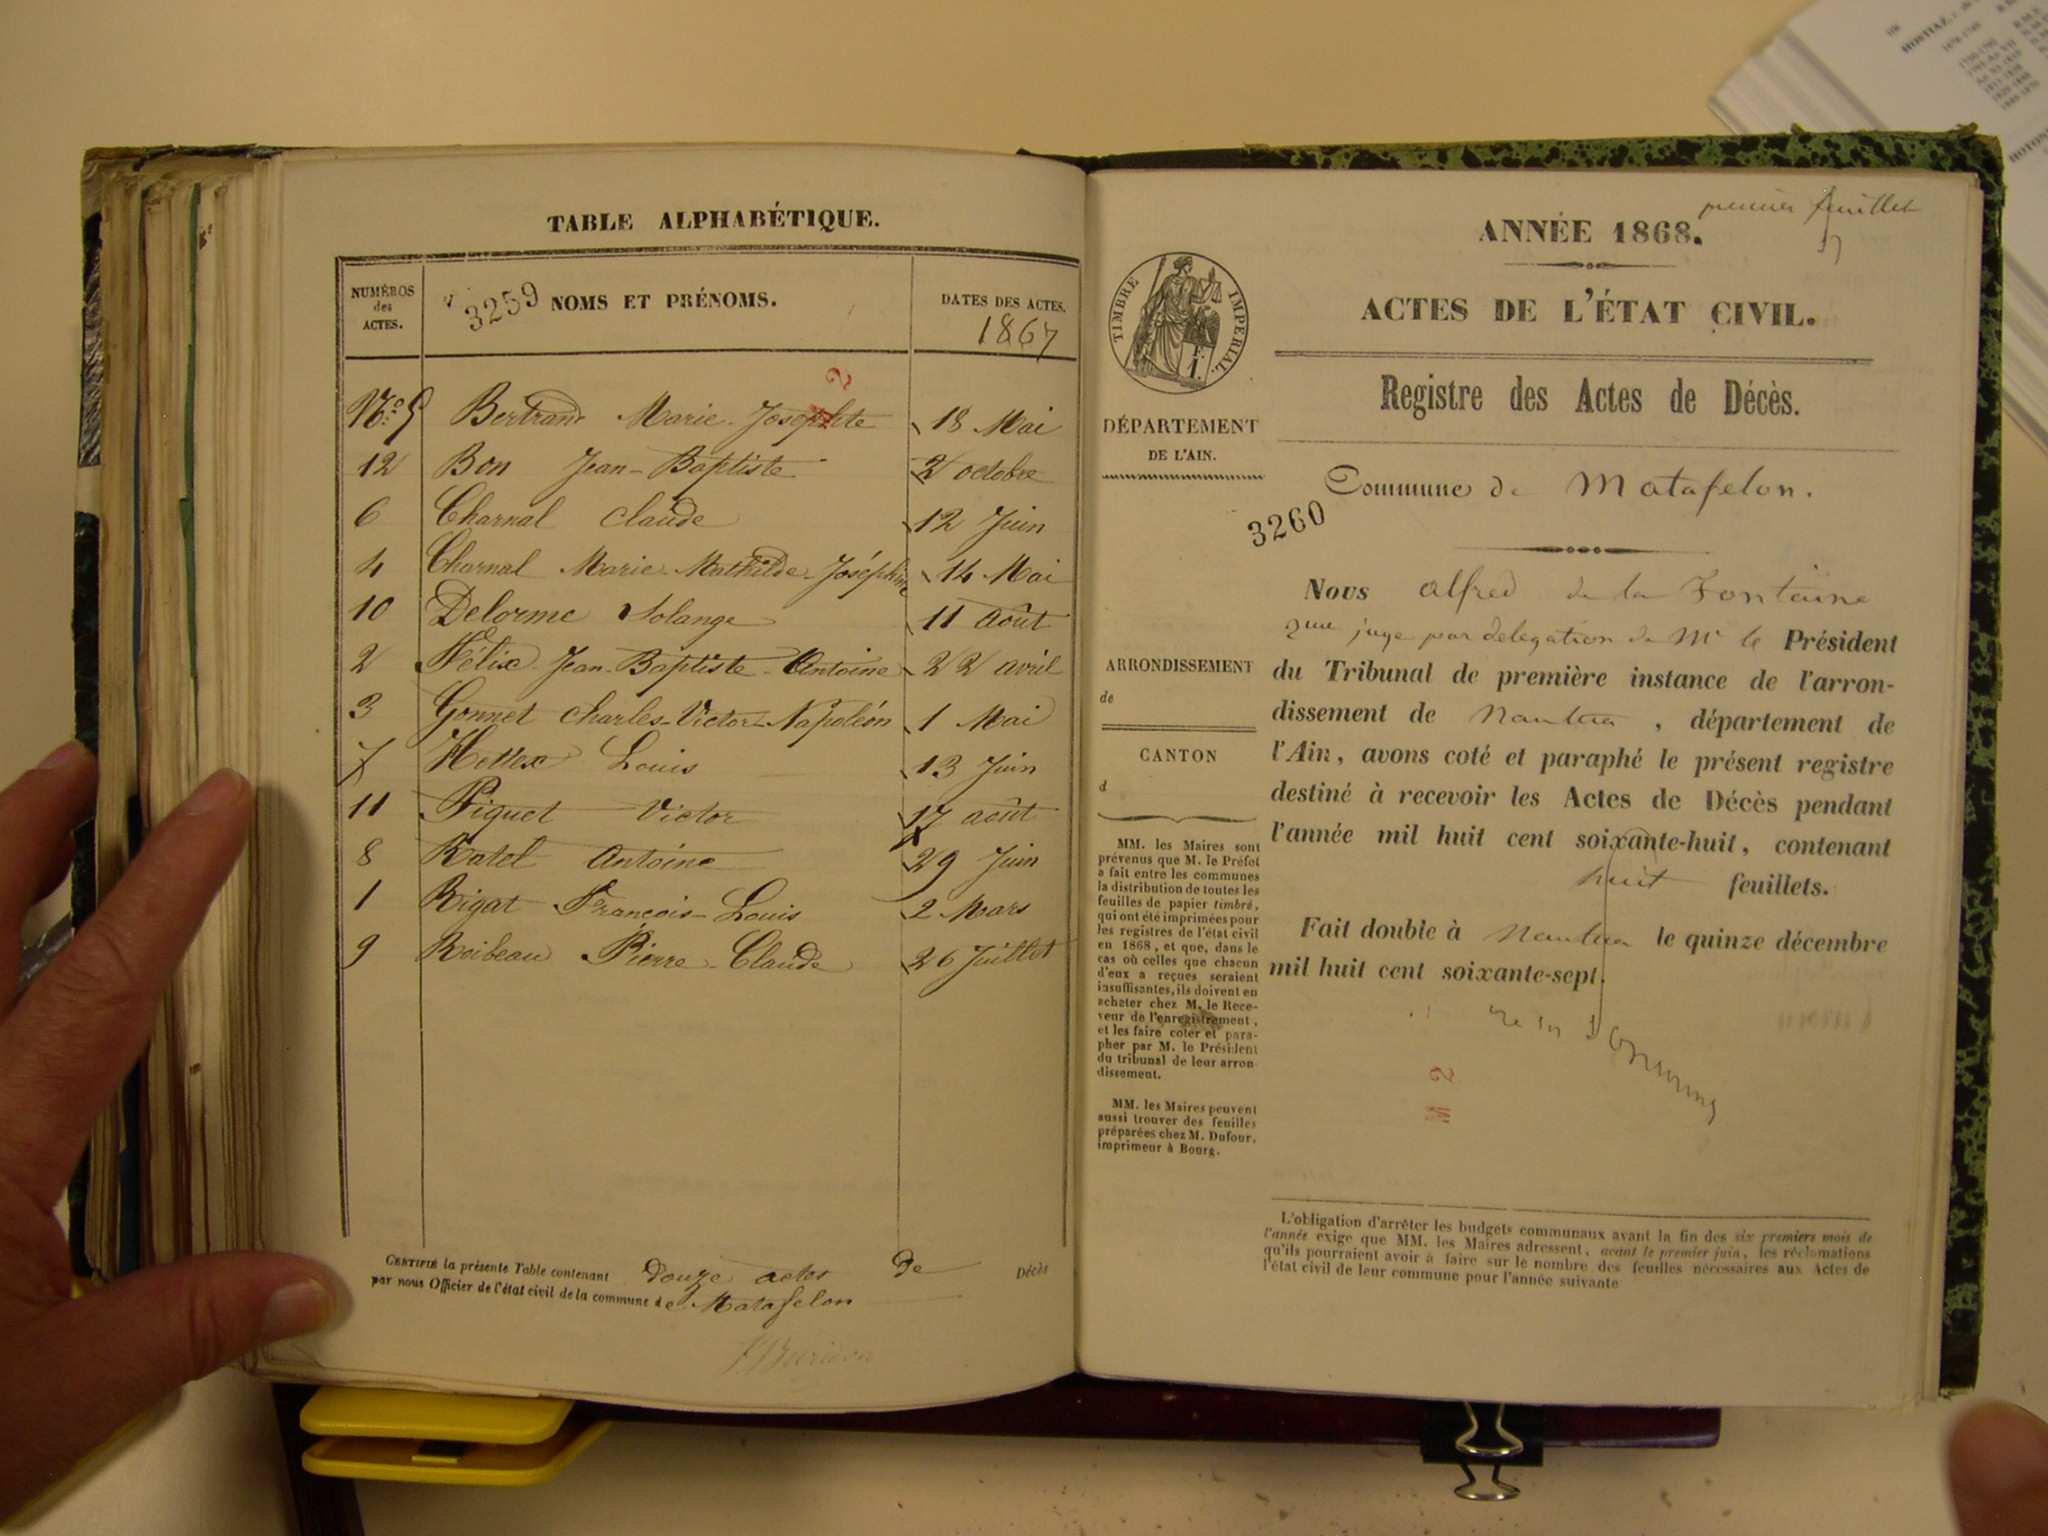 TABLE ALPHABÉTIQUE.
NUMÉROS des ACTES.
3259 NOMS ET PRÉNOMS.
DATES DES ACTES.
1867
N.º 5 Bertrand Marie-Josephte 18 Mai
12 Bon Jean-Baptiste 2 octobre
6 Charnal Claude 12 Juin
4 Charnal Marie-Mathilde-Joséphine 14 Mai
10 Delorme Solange 11 Août
2 Félix Jean-Baptiste-Antoine 22 avril
3 Gonnet Charles-Victor-Napoléon 1 Mai
7 Louis 13 Juin
11 Piguet Victor 17 août
8 Ratel Antoine 29 Juin
1 Rigat François-Louis 2 Mars
9 Roibeau Pierre-Claude 26 Juillet
CERTIFIÉ la présente Table contenant douze actes de Décès
par nous Officier de l'état civil de la commune de Matafelon
premier feuillet
ANNÉE 1868.
ACTES DE L'ÉTAT CIVIL.
Registre des Actes de Décès.
TIMBRE IMPERIAL.
1 F.
DÉPARTEMENT
DE L'AIN.
ARRONDISSEMENT
de
CANTON
d
MM. les Maires sont
prévenus que M. le Préfet
a fait entre les communes
la distribution de toutes les
feuilles de papier timbré,
qui ont été imprimées pour
les registres de l'état civil
en 1868, et que, dans le
cas où celles que chacun
d'eux a reçues seraient
insuffisantes, ils doivent en
acheter chez M. le Rece-
veur de l'enregistrement,
et les faire coter et para-
pher par M. le Président
du tribunal de leur arron-
dissement.
MM. les Maires peuvent
aussi trouver des feuilles
préparées chez M. Dufour,
imprimeur à Bourg.
Commune de Matafelon.
3260
Nous Alfred de la Fontaine
juge par delegation de Mr le Président
du Tribunal de première instance de l'arron-
dissement de Nantua, département de
l'Ain, avons coté et paraphé le présent registre
destiné à recevoir les Actes de Décès pendant
l'année mil huit cent soixante-huit, contenant
huit feuillets.
Fait double à Nantua le quinze décembre
mil huit cent soixante-sept.
L'obligation d'arrêter les budgets communaux avant la fin des six premiers mois de
l'année exige que MM. les Maires adressent, avant le premier juin, les réclamations
qu'ils pourraient avoir à faire sur le nombre des feuilles nécessaires aux Actes de
l'état civil de leur commune pour l'année suivante